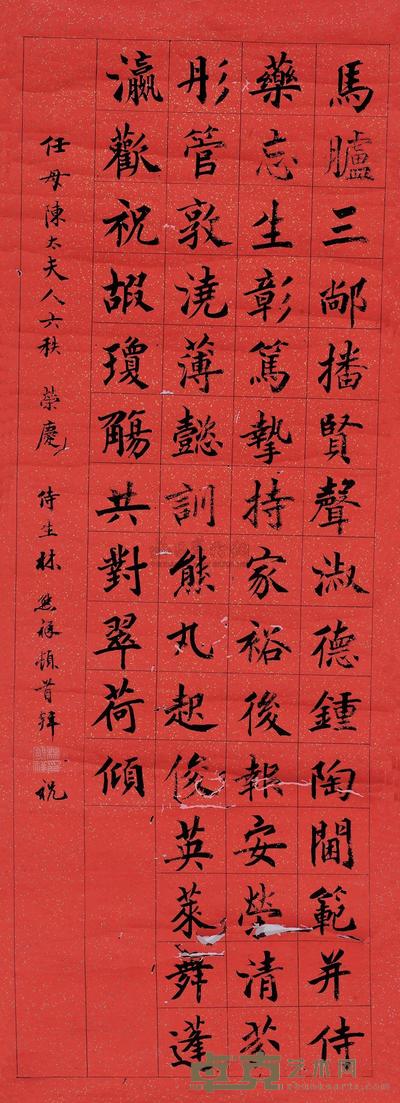 馬臚三播賢聲淑德鍾陶閫範并侍
藥忘生彰篤摯持家裕後報安榮清芬
彤管敦澆薄懿訓熊丸起俊英萊舞蓬
瀛歡祝嘏瓊觴共對翠荷傾
任母陳太夫人六秩 榮慶 侍生林熊祥頓首拜 祝
卓克艺术网